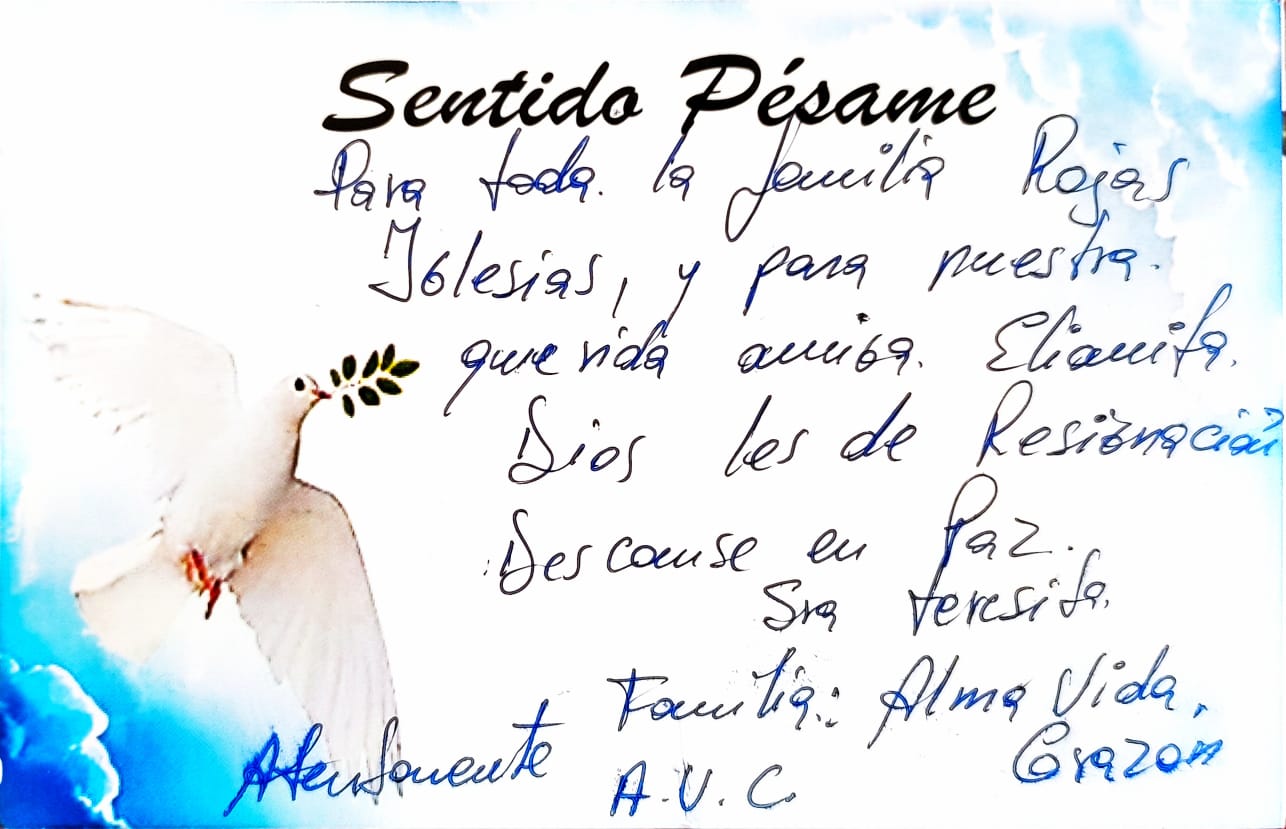 Sentido Pésame
Para toda. la familia Rojas
Iglesias, y para nuestra.
querida amiga. Elianita.
Dios les de Resignación
Descanse en Paz.
Sra teresita.
Familia: Alma Vida,
Corazon
Atentamente
A.V.C.